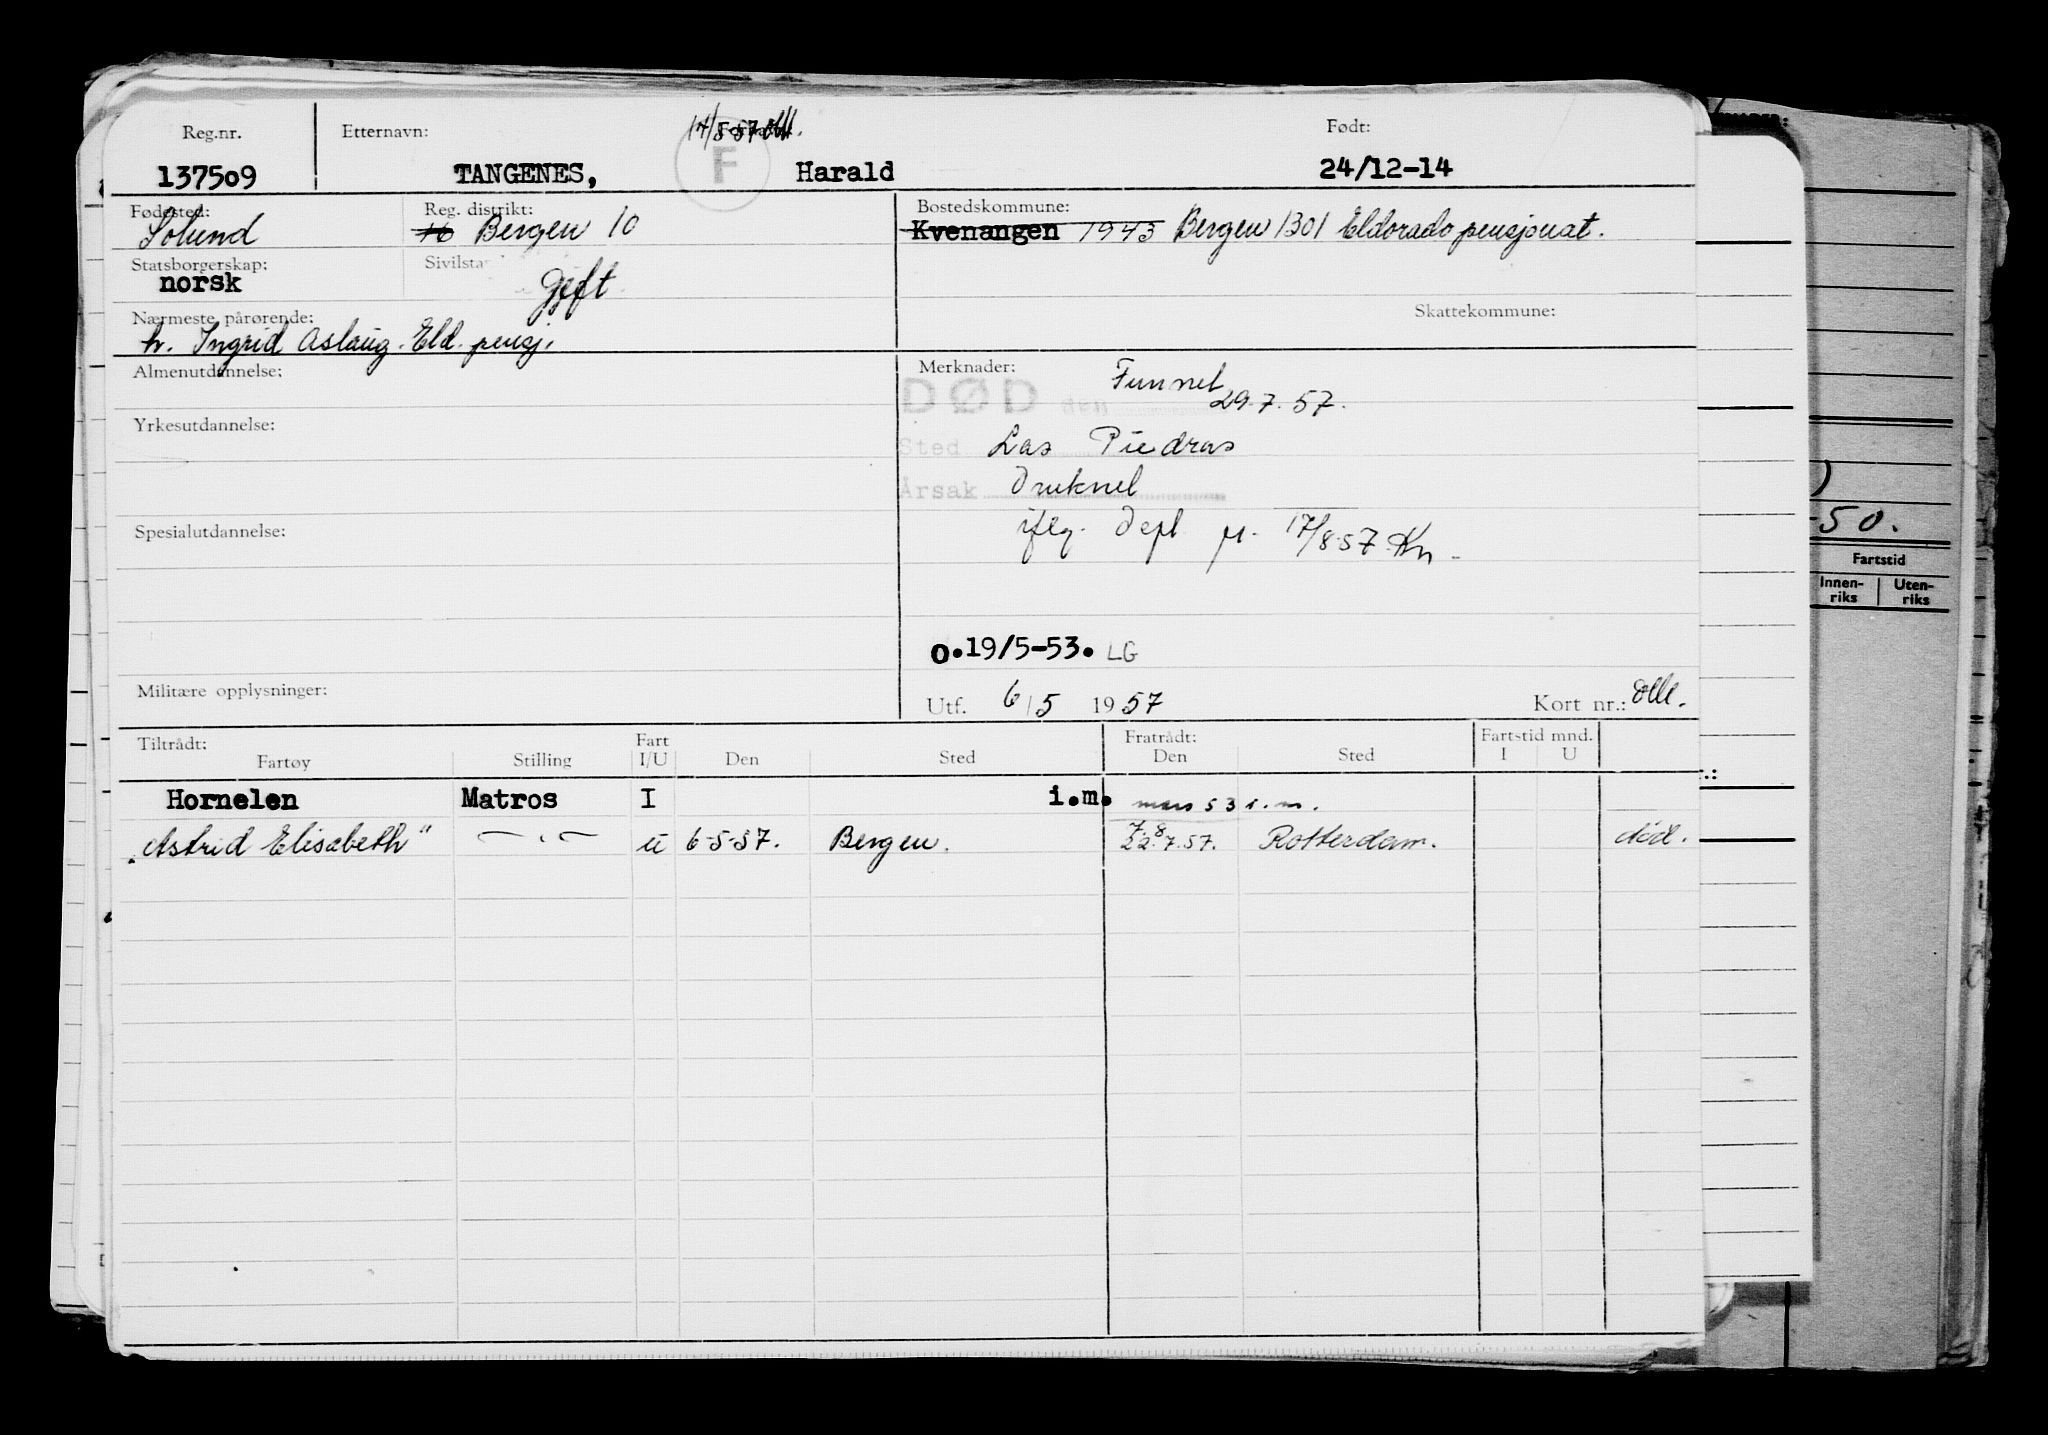 Reg.nr. Etternavn: Født:
137509 TANGENES, F Harald 24/12-14
Fødested: Reg. distrikt: Bostedskommune:
Solund 16 Bergen 10 Kvenangen 1943 Bergen 1301 Eldorado pensjonat.
Statsborgerskap: Sivilsta
norsk gift
Nærmeste pårørende: Skattekommune:
h. Ingrid Aslaug. Eld. pensj.
Almenutdannelse: Merknader: Funnet
DØD den 29.7.57.
Yrkesutdannelse:
Sted Las Piedras
Årsak Druknet
Spesialutdannelse: iflg. Dept 17/8-57 Kn
o.19/5-53. LG
Militære opplysninger: Utf. 6/5 1957 Kort nr.:
Tiltrådt: Fart Fratrådt: Fartstid mnd.
Fartøy Stilling I/U Den Sted Den Sted I U
Hornelen Matros I i.m. mars 53 i.m.
"Astrid Elisabeth" — " — u 6-5-57. Bergen. 22.7.57. Rotterdam.
-50.
Fartstid
Innen-riks Uten-riks